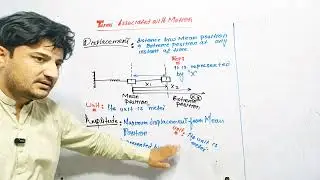 Terms Associated with Motion
Displacement: Distance b/w Mean position
& Extreme position at any
instant of time
Rep:
It is represented
by "x"
x1
x2
Mean
position
Extreme
position
Unit: Its unit is meter
Amplitude: Maximum displacement from Mean
Position
Unit: Its unit is
meter